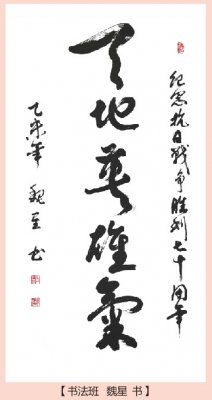 纪念抗日戰争胜利七十周年
天地英雄氣
乙未年 魏星书
【书法班 魏星 书】